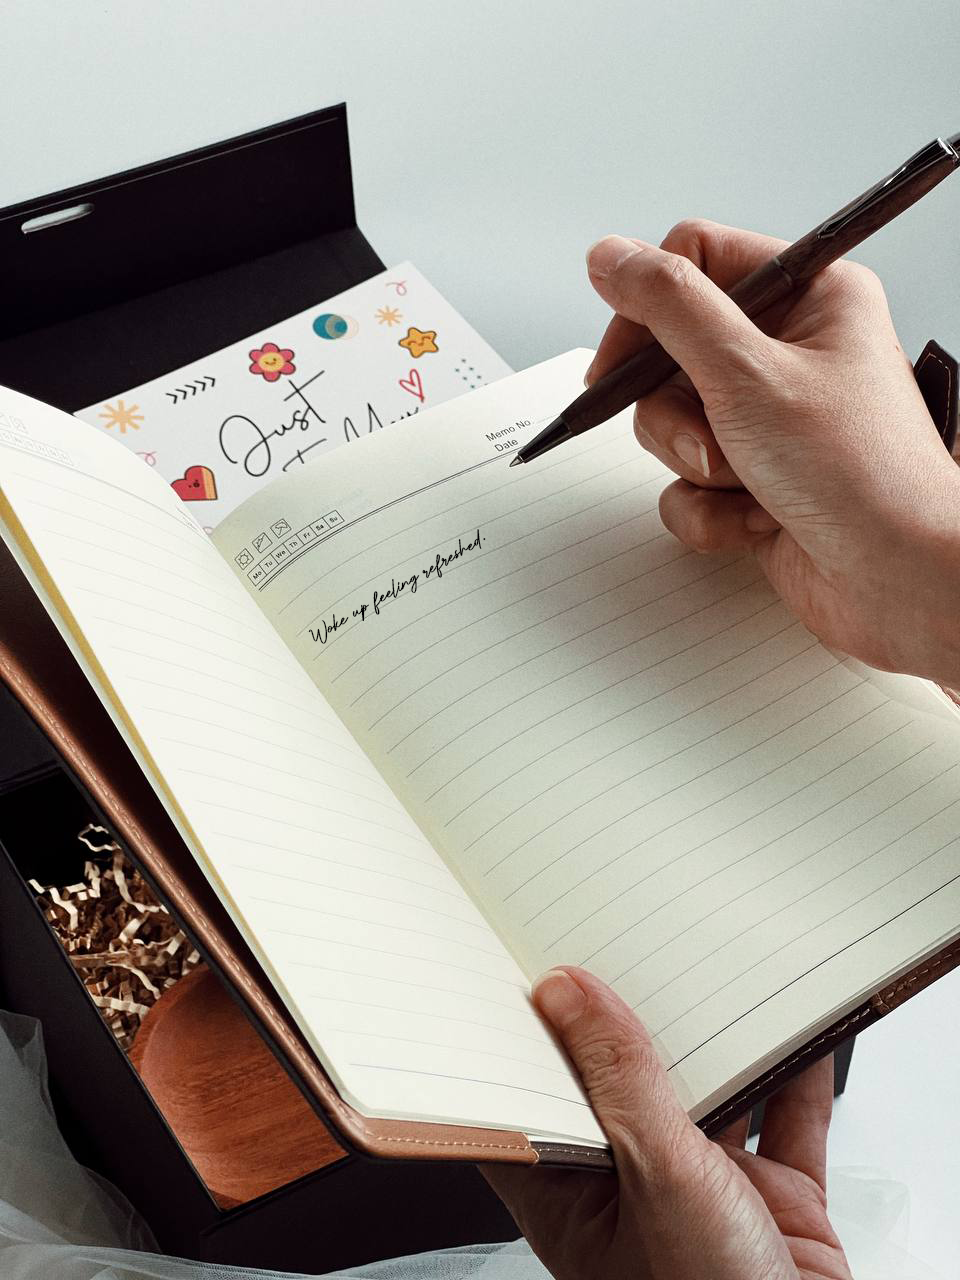 Just
Memo No.
Date
Mo Tu We Th Fr Sa Su
Woke up feeling refreshed.